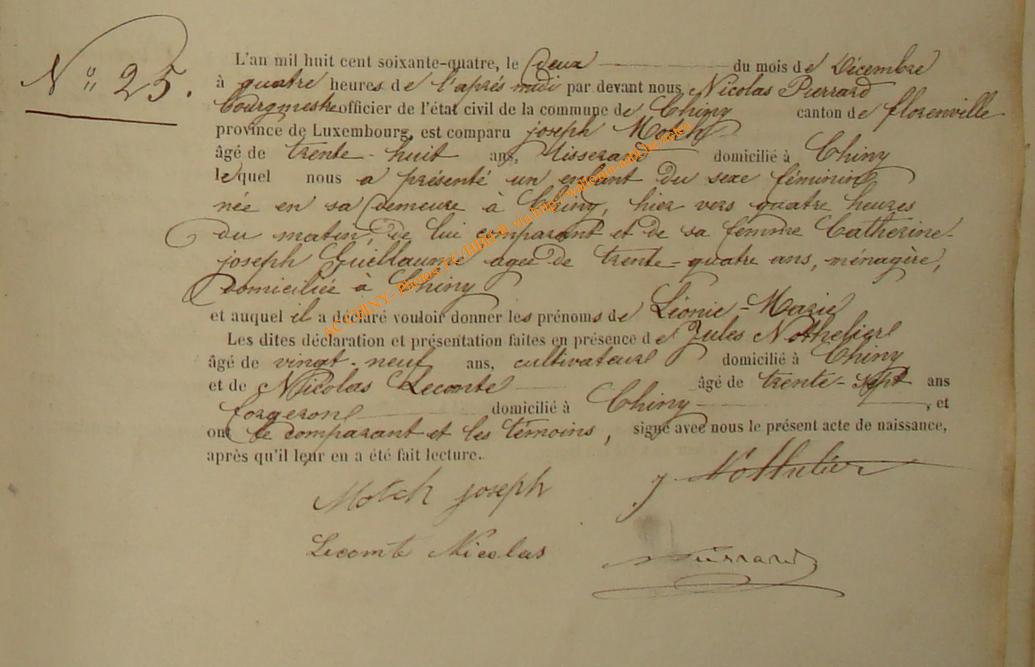 N° 25.
L'an mil huit cent soixante-quatre, le deux du mois de Décembre
à quatre heures de l'après midi par devant nous Nicolas Pierrard
bourgmestre officier de l'état civil de la commune de Chiny canton de florenville
province de Luxembourg, est comparu joseph Motch
âgé de trente-huit ans, tisserand domicilié à Chiny
lequel nous a présenté un enfant du sexe féminin
née en sa demeure à Chiny, hier vers quatre heures
du matin, de lui comparant et de sa femme Catherine-
joseph Guillaume agée de trente-quatre ans, ménagère,
Domiciliée à Chiny
et auquel il a déclaré vouloir donner les prénoms de Léonie-Marie
Les dites déclaration et présentation faites en présence de Jules Nothelier
âgé de vingt-neuf ans, cultivateur domicilié à Chiny
et de Nicolas Lecomte âgé de trente-sept ans
forgeron domicilié à Chiny, et
ont le comparant et les témoins, signé avec nous le présent acte de naissance,
après qu'il leur en a été fait lecture.
Motch joseph J. Nothelier
Lecomte Nicolas Pierrard